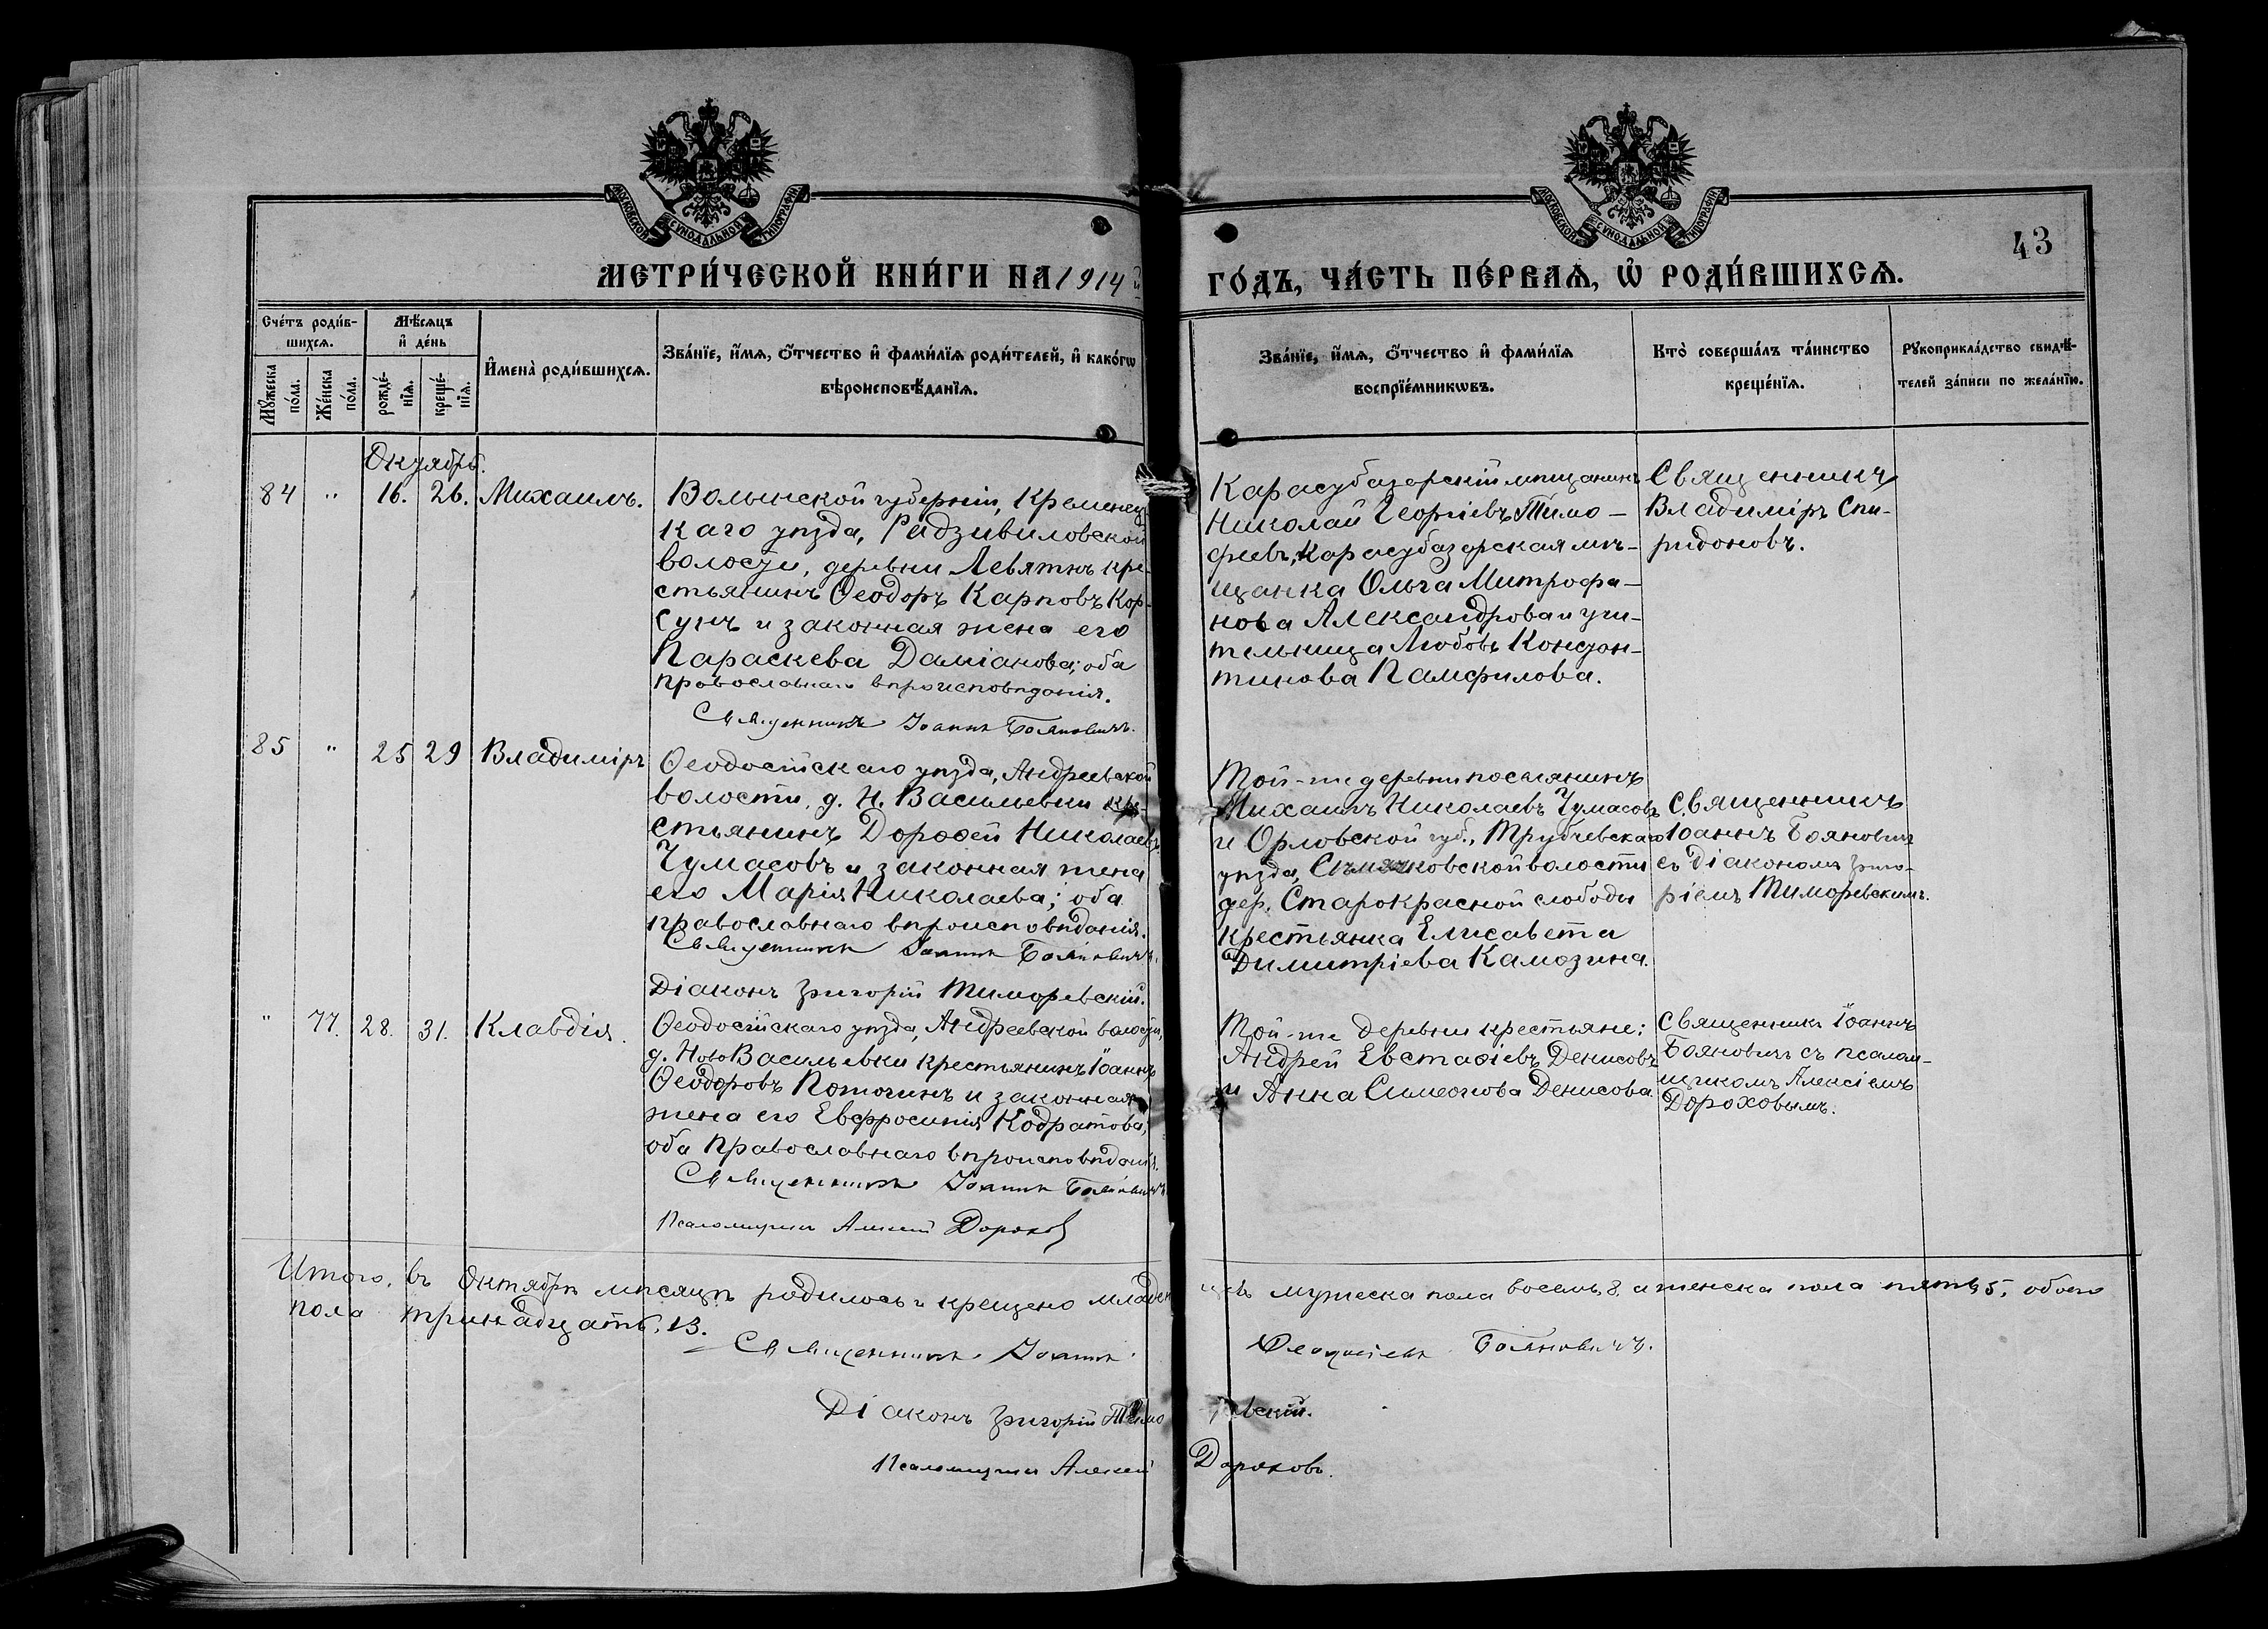 МОСКОВСКОЙ СѴНОДАЛЬНОЙ ТИПОГРАФІИ
МОСКОВСКОЙ СѴНОДАЛЬНОЙ ТИПОГРАФІИ
43
МЕТРИ́ЧЕСКОЙ КНИ́ГИ НА 1914 й
ГО́ДЪ, ЧА́СТЬ ПЕ́РВАѦ, Ѡ҆ РОДИ́ВШИХСѦ.
Сче́тъ роди́в-
шихсѧ.
Мѣ́сѧцъ
и҆ де́нь
Мꙋ́жеска
по́ла.
Же́нска
по́ла.
рожде́-
нїѧ.
креще́-
нїѧ.
И҆мена̀ роди́вшихсѧ.
Зва́нїе, и҆́мѧ, ѻ҆́тчество и҆ фами́лїѧ роди́телей, и҆ како́гѡ
вѣроисповѣ́данїѧ.
Зва́нїе, и҆́мѧ, ѻ҆́тчество и҆ фами́лїѧ
воспрїе́мникѡвъ.
Кто̀ соверша́лъ та́инство
креще́нїѧ.
Рꙋкоприкла́дство свидѣ́-
телей за́писи по жела́нїю.
Октябрь.
84 " 16. 26. Михаилъ.
Волынской губерніи, Кременец
каго уѣзда, Радзивиловской
волости, деревни Левятнъ кре-
стьянинъ Ѳеодоръ Карповъ Кор-
сунъ и законная жена его
Параскева Даміанова; оба
православнаго вѣроисповѣданія.
Священникъ Іоаннъ Бояновичъ.
Карасубазарскій мѣщанинъ
Николай Георгіевъ Тимо-
фѣевъ, Карасубазарская мѣ-
щанка Ольга Митрофа-
нова Александрова и учи-
тельница Любовь Констан-
тинова Памфилова.
Священникъ
Владиміръ Спи-
ридоновъ.
85 " 25 29 Владиміръ
Ѳеодосійскаго уѣзда, Андреевской
волости, д. Н. Васильевки кре-
стьянинъ Дороѳей Николаевъ
Чумасовъ и законная жена
его Марія Николаева; оба
православнаго вѣроисповѣданія.
Священникъ Іоаннъ Бояновичъ.
Діаконъ Григорій Тиморевскій.
Той-же деревни поселянинъ
Михаилъ Николаевъ Чумасовъ
и Орловской губ., Трубчевскаго
уѣзда, волости
дер. Старокрасной слободы
крестьянка Елисавета
Димитріева Камозина.
Священникъ
Іоаннъ Бояновичъ
съ діакономъ Григо-
ріемъ Тиморевскимъ.
" 77. 28. 31. Клавдія.
Ѳеодосійскаго уѣзда, Андреевской волости,
д. Ново Васильевки крестьянинъ Іоаннъ
Ѳеодоровъ Поточинъ и законная
жена его Евфросинія Кодратова;
оба православнаго вѣроисповѣданія.
Священникъ Іоаннъ Бояновичъ
Псаломщикъ Алексій Дороховъ
Той-же деревни крестьяне:
Андрей Евстаѳіевъ Денисовъ
и Анна Симеонова Денисова.
Священникъ Іоаннъ
Бояновичъ съ псалом-
щикомъ Алексіемъ
Дороховымъ.
Итого, въ Октябрѣ мѣсяцѣ родилось и крещено младенцевъ мужеска пола восемь, 8, а женска пола пять, 5, обоего
пола тринадцать, 13.
Священникъ Іоаннъ Бояновичъ.
Діаконъ Григорій Тиморевскій.
Псаломщикъ Алексій Дороховъ.